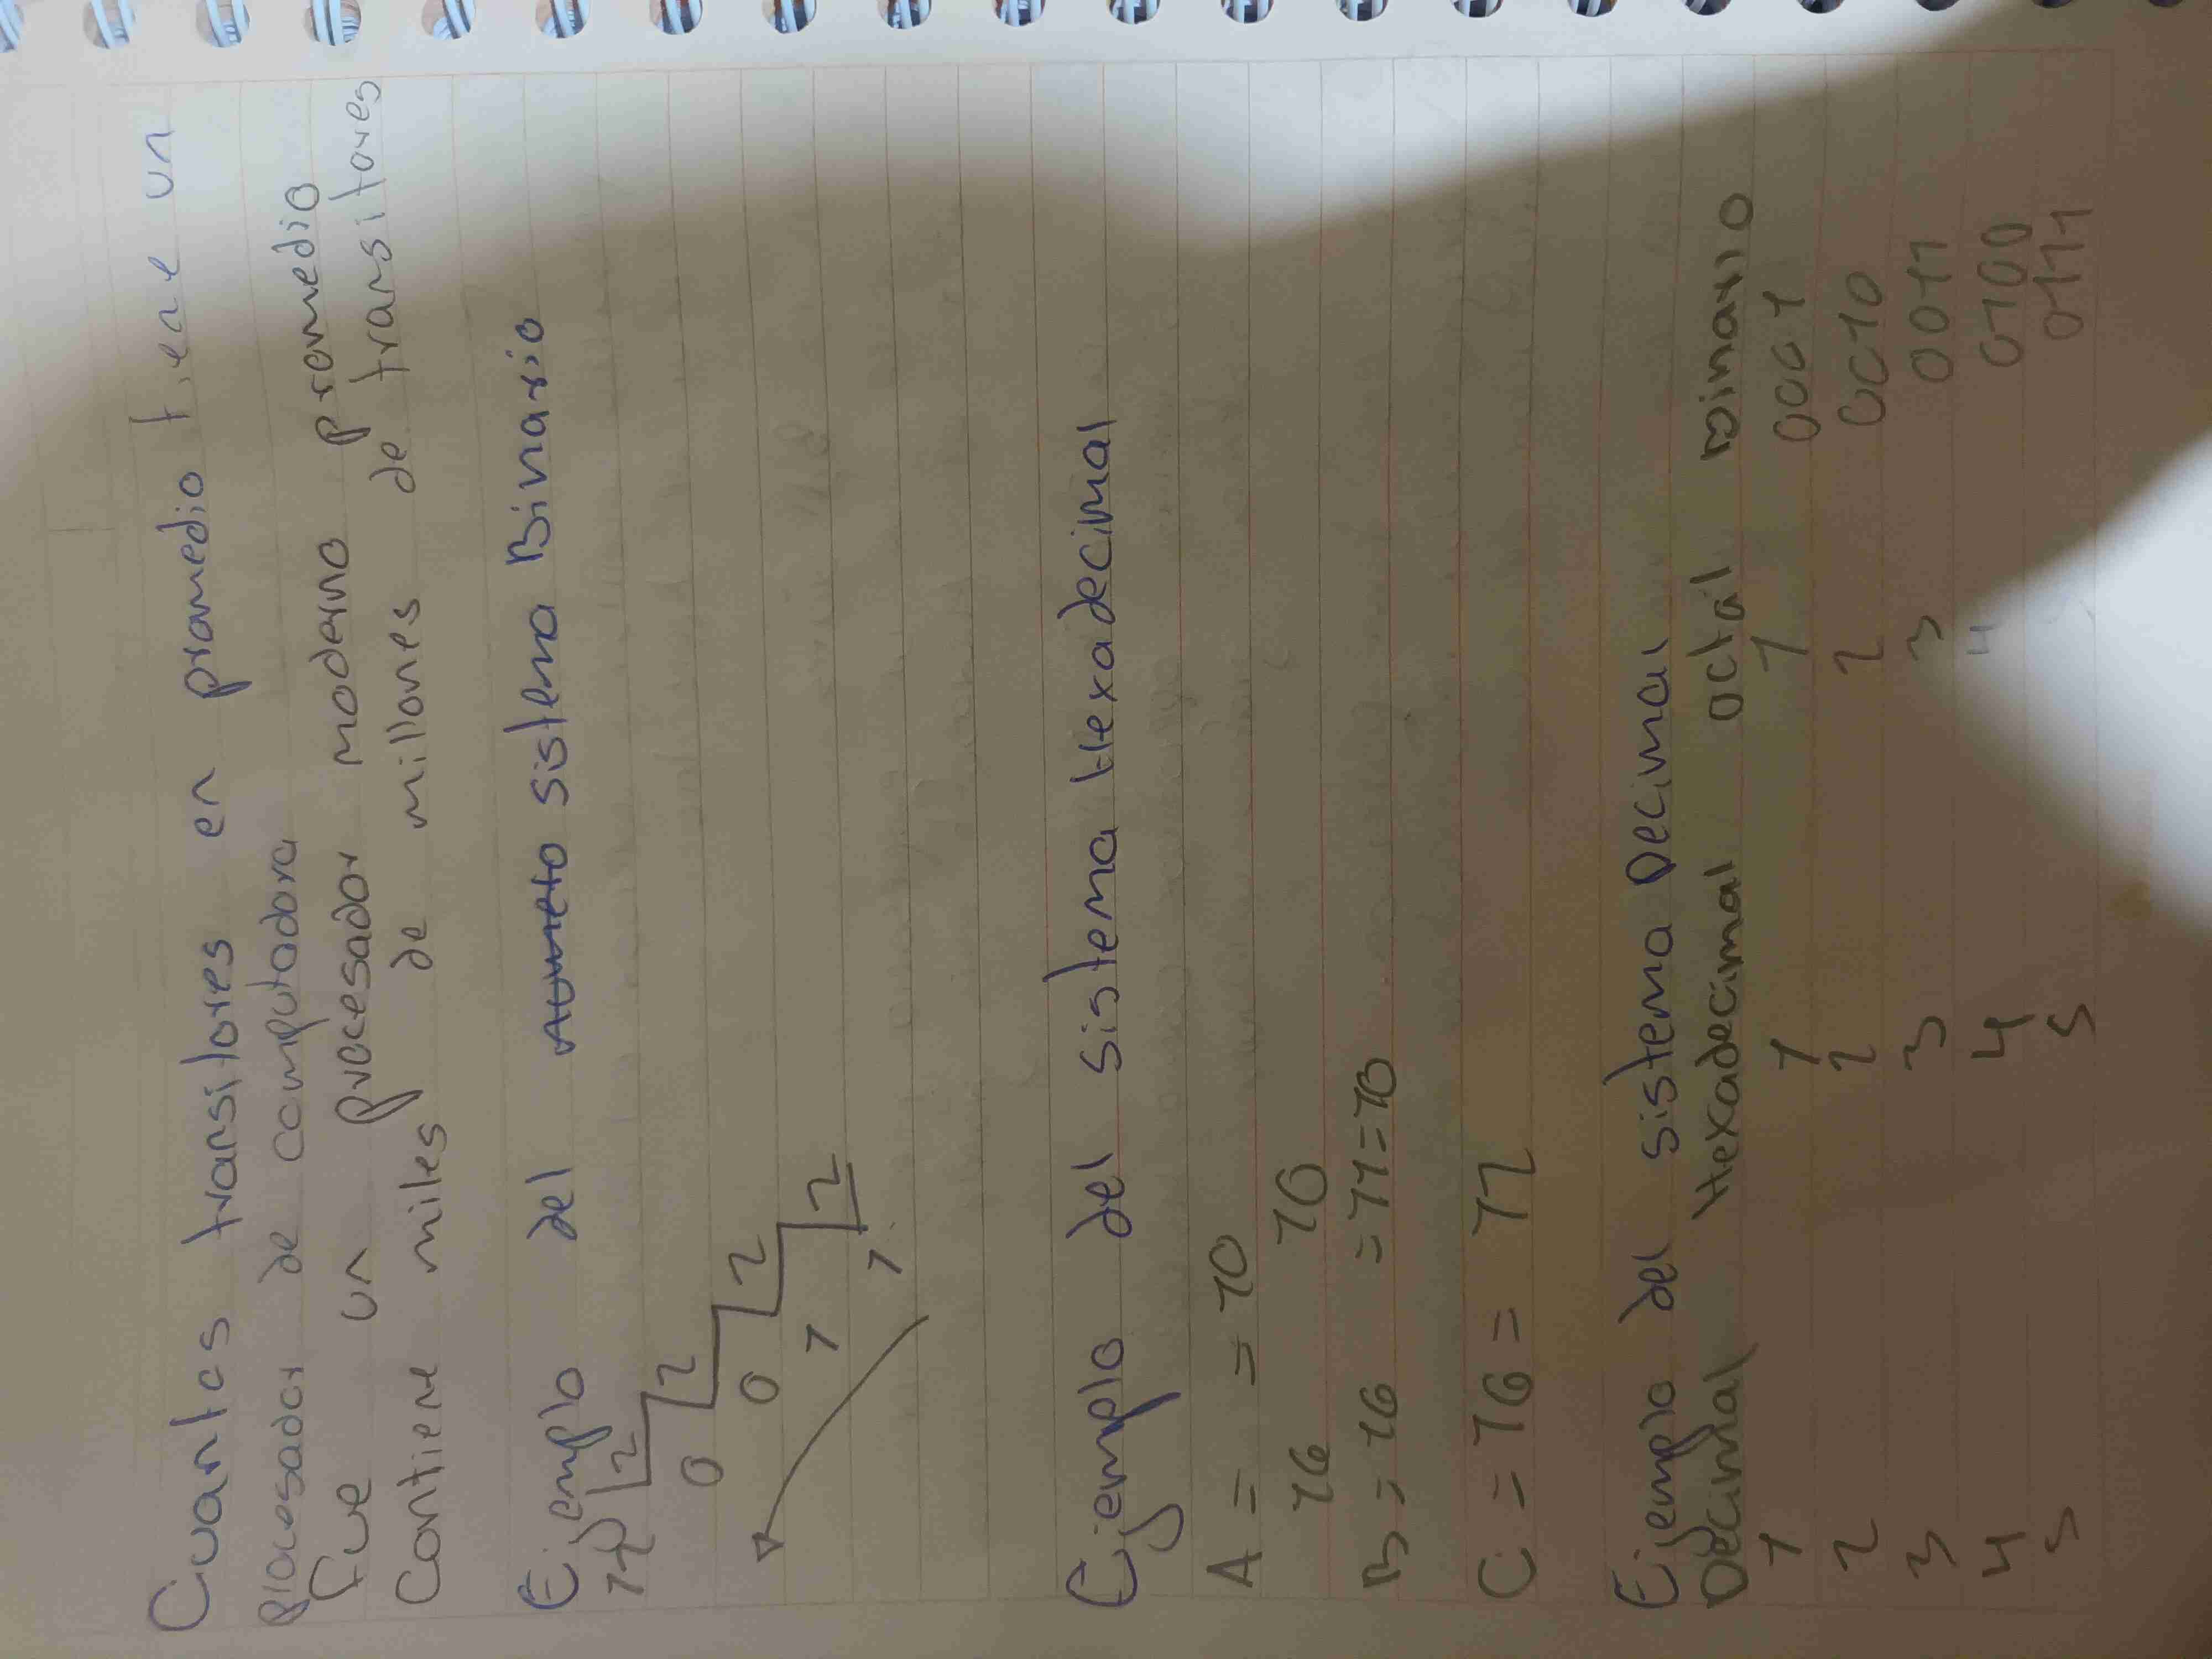 Cuantos transitores en promedio tiene un
procesador de computadora
Fue un procesador moderno promedio
Contiene miles de millones de transitores
Ejemplo del sistema Binario
12 2
0 2
0 2
1 2
1
Ejemplo del sistema Hexadecimal
A = = 10
16 10
B = 16 = 11 = B
C = 16 = 12
Ejemplo del sistema Decimal
Decimal Hexadecimal octal Binario
1 1 1 0001
2 2 2 0010
3 3 3 0011
4 4 4 0100
5 5 0111